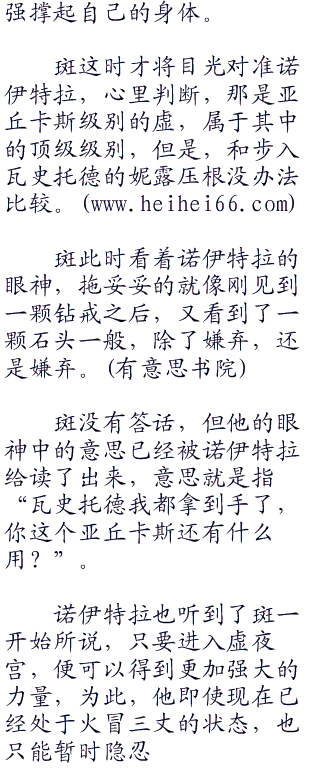 强撑起自己的身体。
斑这时才将目光对准诺
伊特拉，心里判断，那是亚
丘卡斯级别的虚，属于其中
的顶级级别，但是，和步入
瓦史托德的妮露压根没办法
比较。(www.heihei66.com)
斑此时看着诺伊特拉的
眼神，拖妥妥的就像刚见到
一颗钻戒之后，又看到了一
颗石头一般，除了嫌弃，还
是嫌弃。(有意思书院)
斑没有答话，但他的眼
神中的意思已经被诺伊特拉
给读了出来，意思就是指
“瓦史托德我都拿到手了，
你这个亚丘卡斯还有什么
用？”。
诺伊特拉也听到了斑一
开始所说，只要进入虚夜
宫，便可以得到更加强大的
力量，为此，他即使现在已
经处于火冒三丈的状态，也
只能暂时隐忍